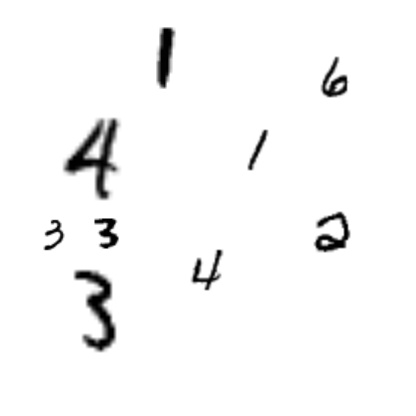 1
6
4 1
3 3 2
4
3